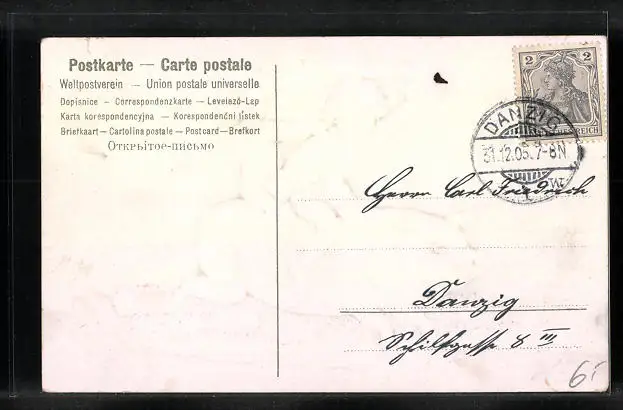 Postkarte — Carte postale
Weltpostverein — Union postale universelle
Dopisnice - Correspondenzkarte — Levelező-Lap
Karta korespondencyjna — Korespondenční lístek
Briefkaart — Cartolina postale — Postcard — Brefkort
Открытое-письмо
2 2
DEUTSCHES REICH
DANZIG
31.12.05. 7-8N.
Herrn Carl Friedrich
Danzig
Schilfgasse 8 III
6.-